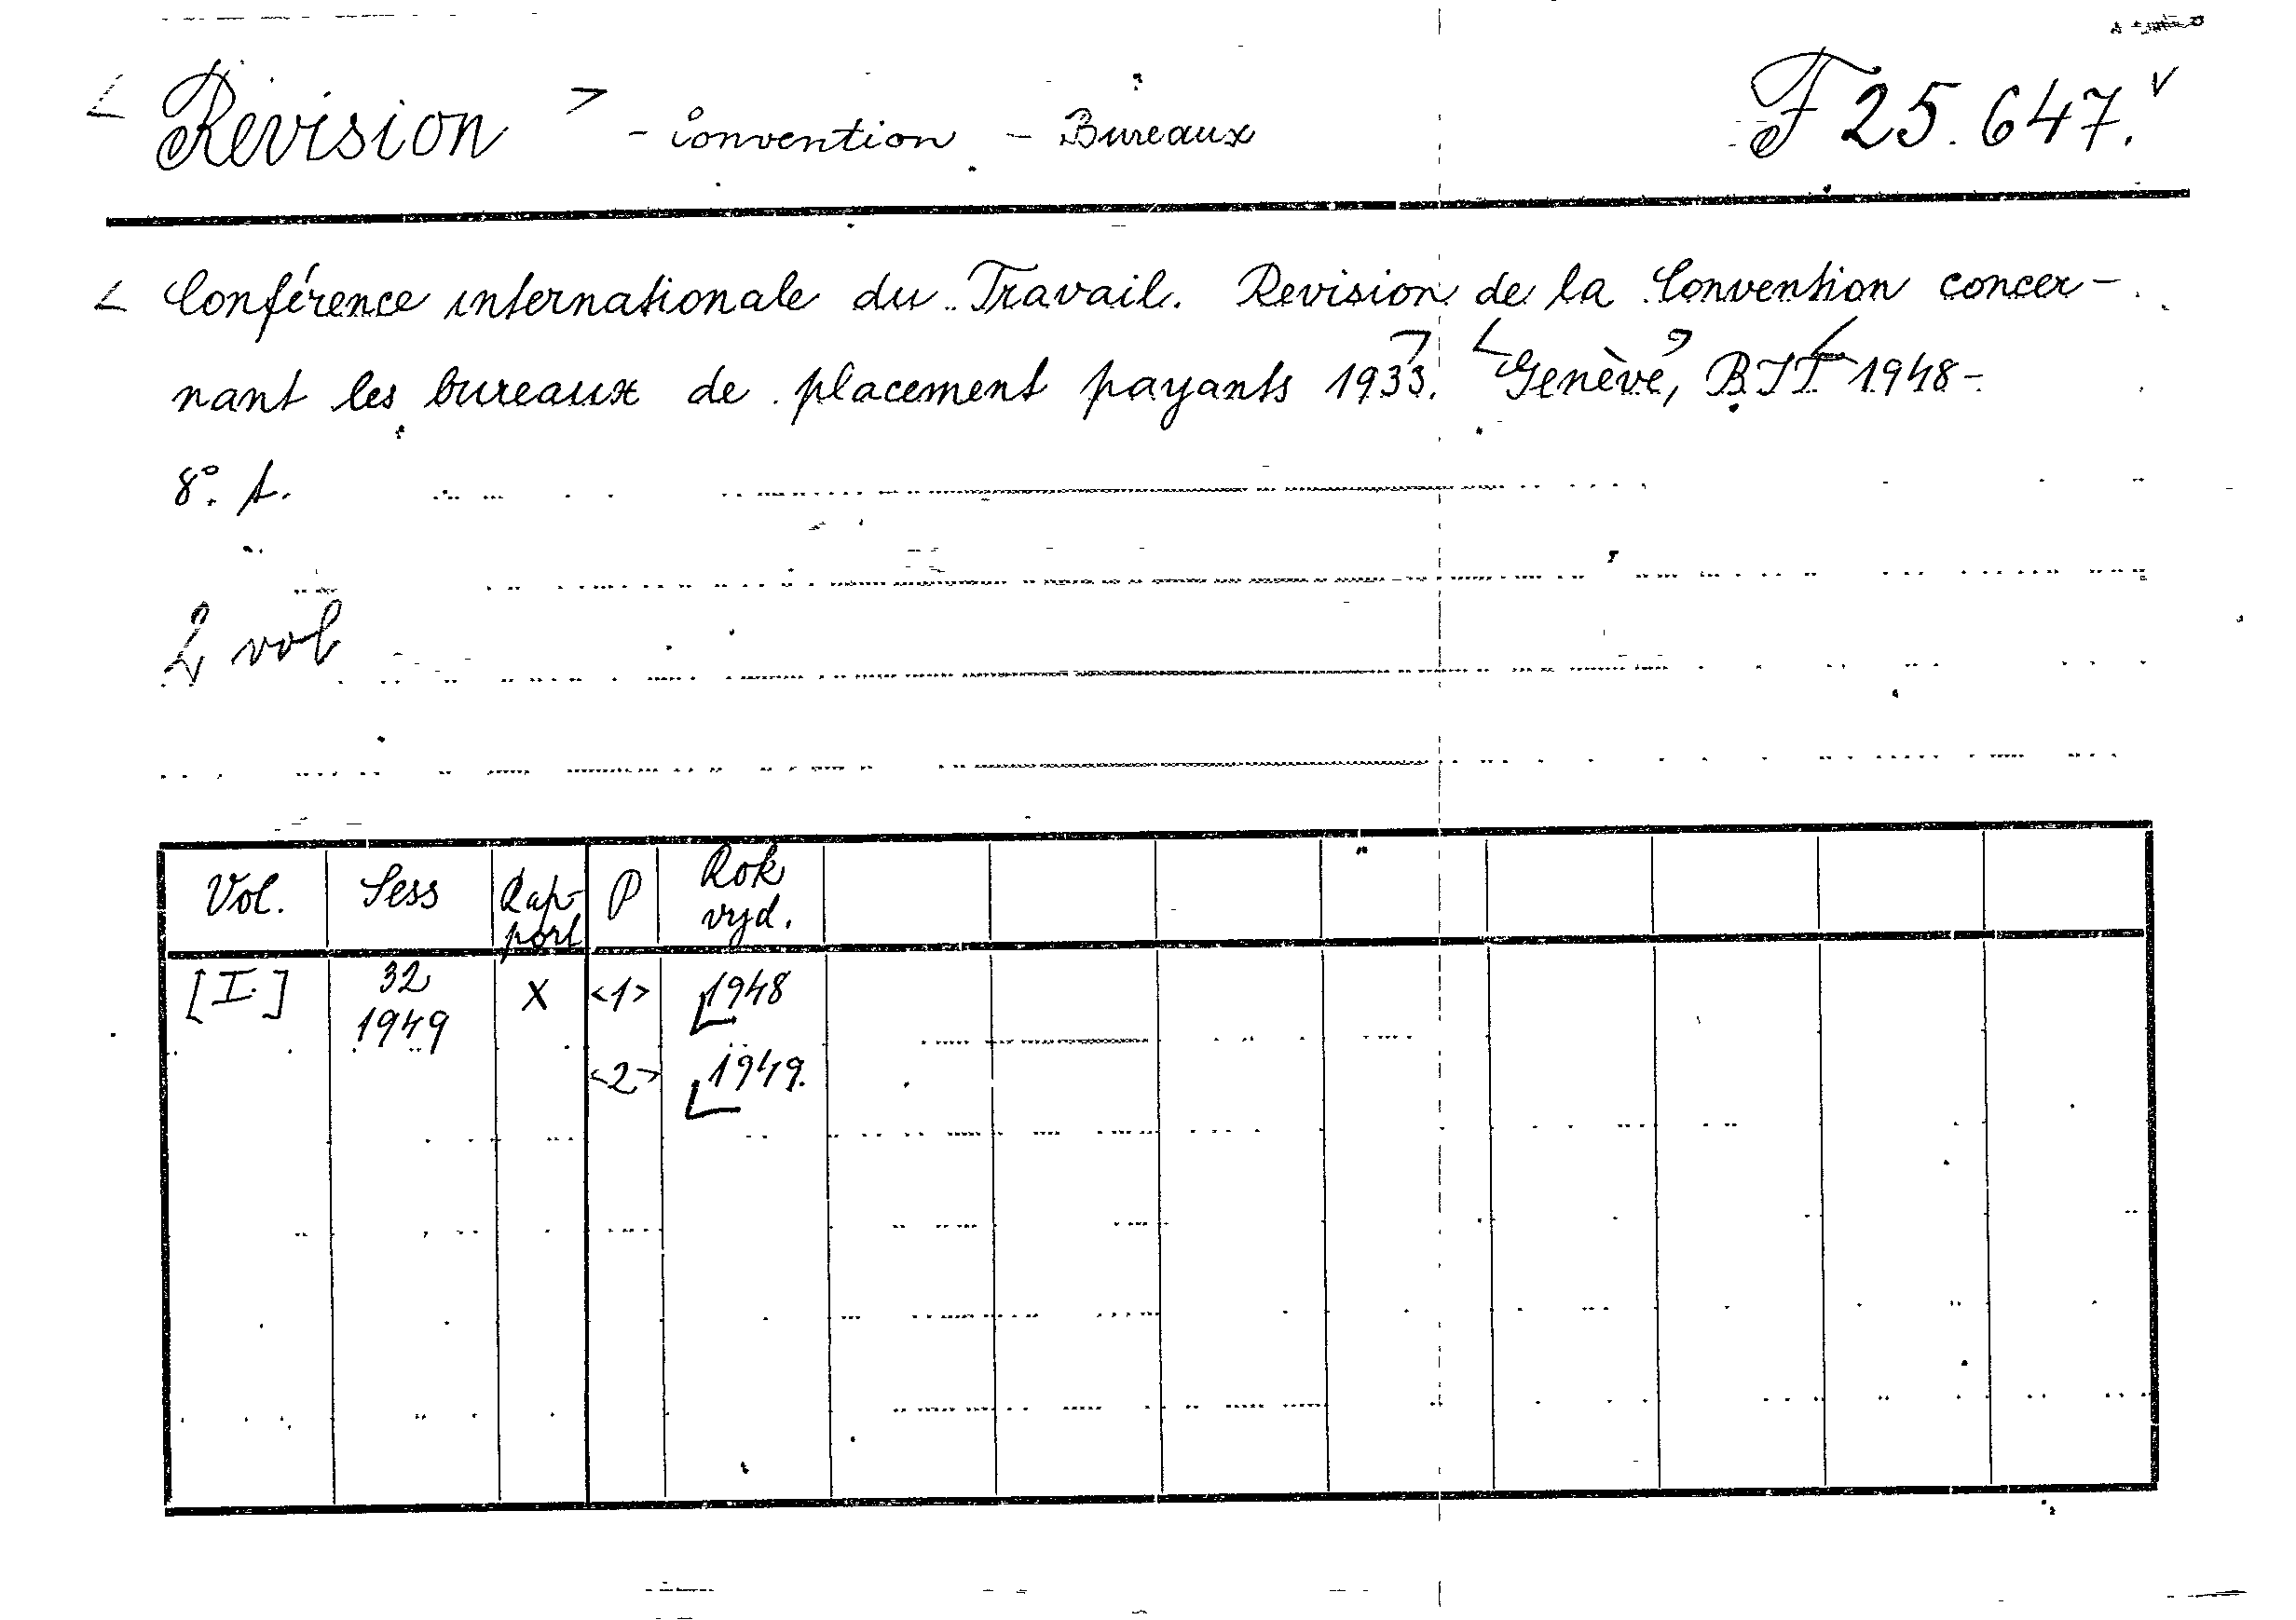 < Revision > - convention - Bureaux F 25.647.
< Conférence internationale du Travail. Revision de la Convention concer-
nant les bureaux de placement payants 1933. Genève, BIT 1948-
8°.
2 vol
Vol. Sess Rap-port P Rok vyd.
[I.] 32 1949 X <1> 1948
<2> 1949.